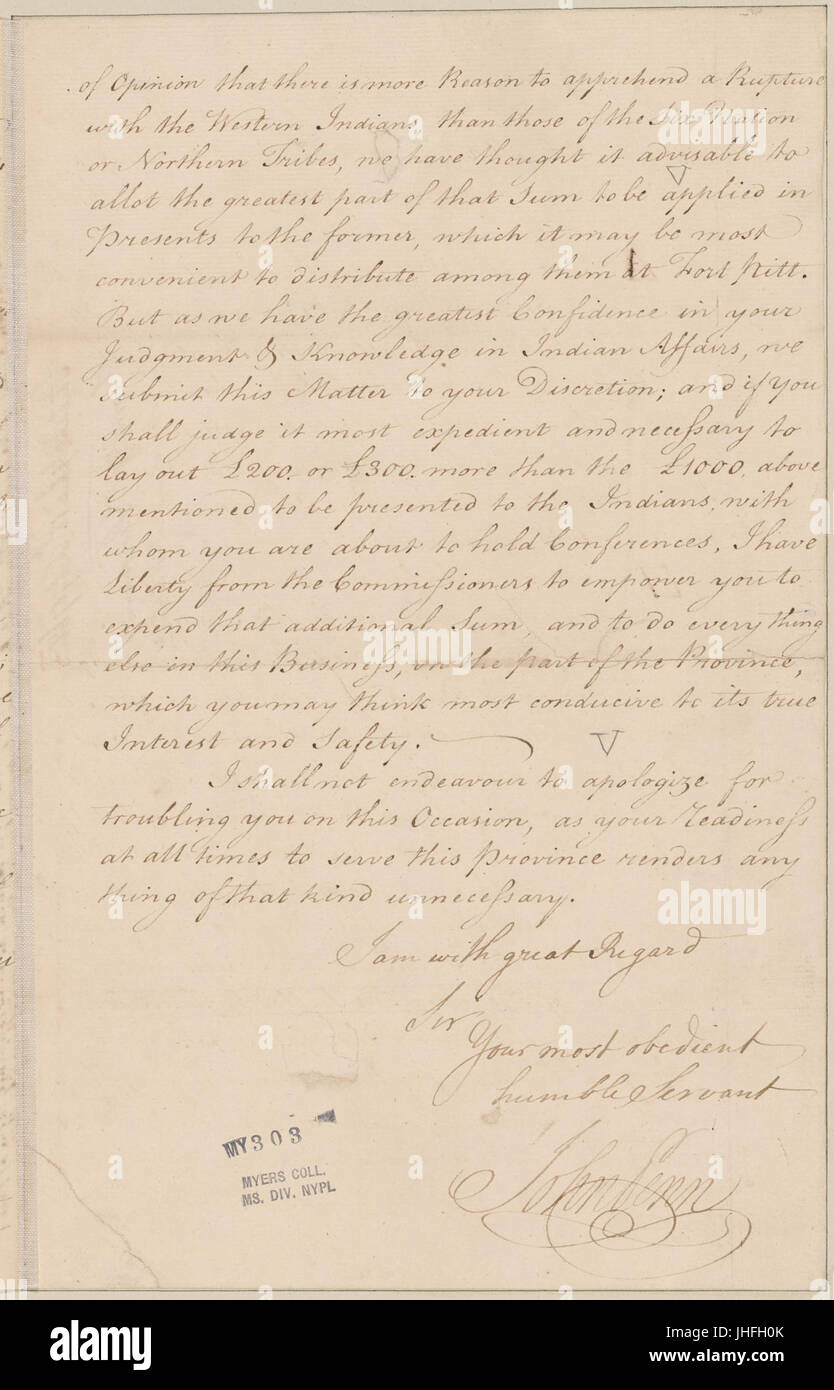 of Opinion that there is more Reason to apprehend a Rupture
with the Western Indians, than those of the Six Nation
or Northern Tribes, we have thought it advisable to
allot the greatest part of that Sum to be applied in
Presents to the former, which it may be most
convenient to distribute among them at Fort Pitt.
But as we have the greatest Confidence in your
Judgment & Knowledge in Indian Affairs, we
submit this Matter to your Discretion; and if you
shall judge it most expedient and necessary to
lay out £200. or £300. more than the £1000, above
mentioned to be presented to the Indians, with
whom you are about to hold Conferences, I have
Liberty from the Commissioners to empower you to
expend that additional Sum, and to do every thing
else in this Business, on the part of the Province,
which you may think most conducive to its true
Interest and Safety.
I shall not endeavour to apologize for
troubling you on this Occasion, as your Readiness
at all times to serve this Province renders any
thing of that kind unnecessary.
I am with great Regard
Sir
Your most obedient
humble Servant
John Penn
MY303
MYERS COLL.
MS. DIV. NYPL
alamy
Image ID: JHFH0K
www.alamy.com